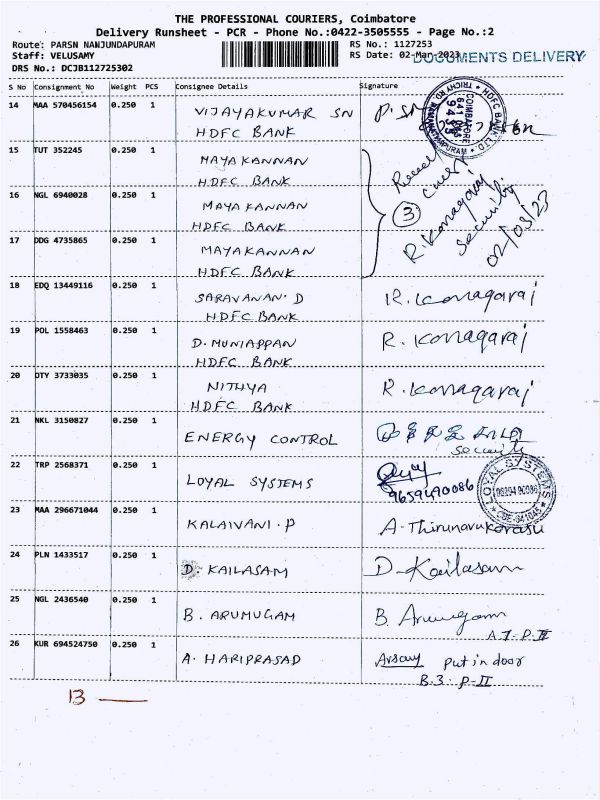 THE PROFESSIONAL COURIERS, Coimbatore
Delivery Runsheet - PCR - Phone No.:0422-3505555 - Page No.:2
Route: PARSN NANJUNDAPURAM RS No.: 1127253
Staff: VELUSAMY RS Date: 02-Mar-2023 DOCUMENTS DELIVERY
DRS No.: DCJB112725302
S No Consignment No Weight PCS Consignee Details Signature
14 MAA 570456154 0.250 1 VIJAYAKUMAR SN
HDFC BANK
HDFC BANK LTD.
TRICHY RD, RAMANATHAPURAM
COIMBATORE
641 045
15 TUT 352245 0.250 1 MAYAKANNAN
HDFC BANK
16 NGL 6940028 0.250 1 MAYA KANNAN
HDFC BANK
17 DDG 4735865 0.250 1 MAYAKANNAN
HDFC BANK
3
R. Konagaraj
Security
02/03/23
18 EDQ 13449116 0.250 1 SARAVANAN. D R. Konagaraj
HDFC BANK
19 POL 1558463 0.250 1 D. MUNIAPPAN R. Konagaraj
HDFC BANK
20 OTY 3733035 0.250 1 NITHYA R. Konagaraj
HDFC BANK
21 NKL 3150827 0.250 1 ENERGY CONTROL
Security
22 TRP 2568371 0.250 1 LOYAL SYSTEMS
9659490086
LOYAL SYSTEMS
CBE-641045
23 MAA 296671044 0.250 1 KALAIVANI. P A. Thirunavukarasu
24 PLN 1433517 0.250 1 D. KAILASAM D. Kailasam
25 NGL 2436540 0.250 1 B. ARUMUGAM B. Arumugam
A.7. P.II
26 KUR 694524750 0.250 1 A. HARIPRASAD put in door
B.3. P-II
13